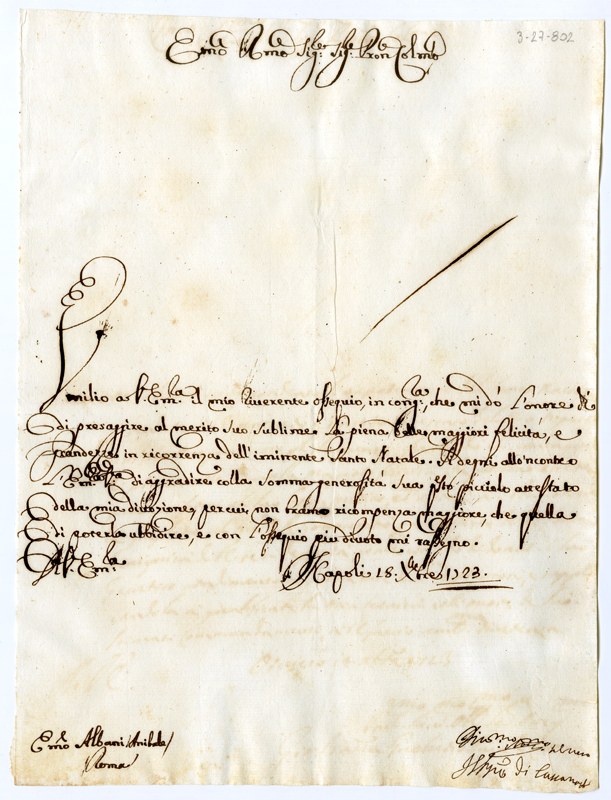 3-27-802
Emo Rmo Sige Sige Pron Colmo
Umilio a V. Emza il mio riverente ossequio, in congza, che mi dò l'onore
di presaggire al merito suo sublime la piena delle maggiori felicità, e
grandezze in ricorrenza dell'imminente Santo Natale. Si degni all'incontro
l'Emza V. di aggradire colla somma generosità sua qsto picciolo attestato
della mia divozione, per cui non bramo ricompenza maggiore, che quella
di poterla ubbidire, e con l'ossequio più divoto mi rassegno.
Di V. Emza
Napoli 18: Xbre 1723.
Emo Albani /Anibale/
Roma
di